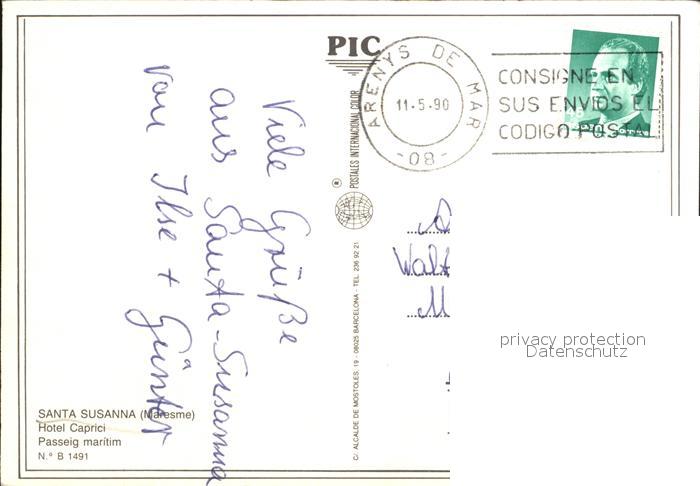 Viele Grüße
aus Santa-Susanna
von Ilse + Günter
SANTA SUSANNA (Maresme)
Hotel Caprici
Passeig marítim
N.º B 1491
PIC
POSTALES INTERNACIONAL COLOR
®
C/ ALCALDE DE MOSTOLES, 19 - 08025 BARCELONA - TEL. 236 92 21
ARENYS DE MAR
11-5-90
-08-
CONSIGNE EN
SUS ENVIOS EL
CODIGO POSTAL
Walt
M
privacy protection
Datenschutz